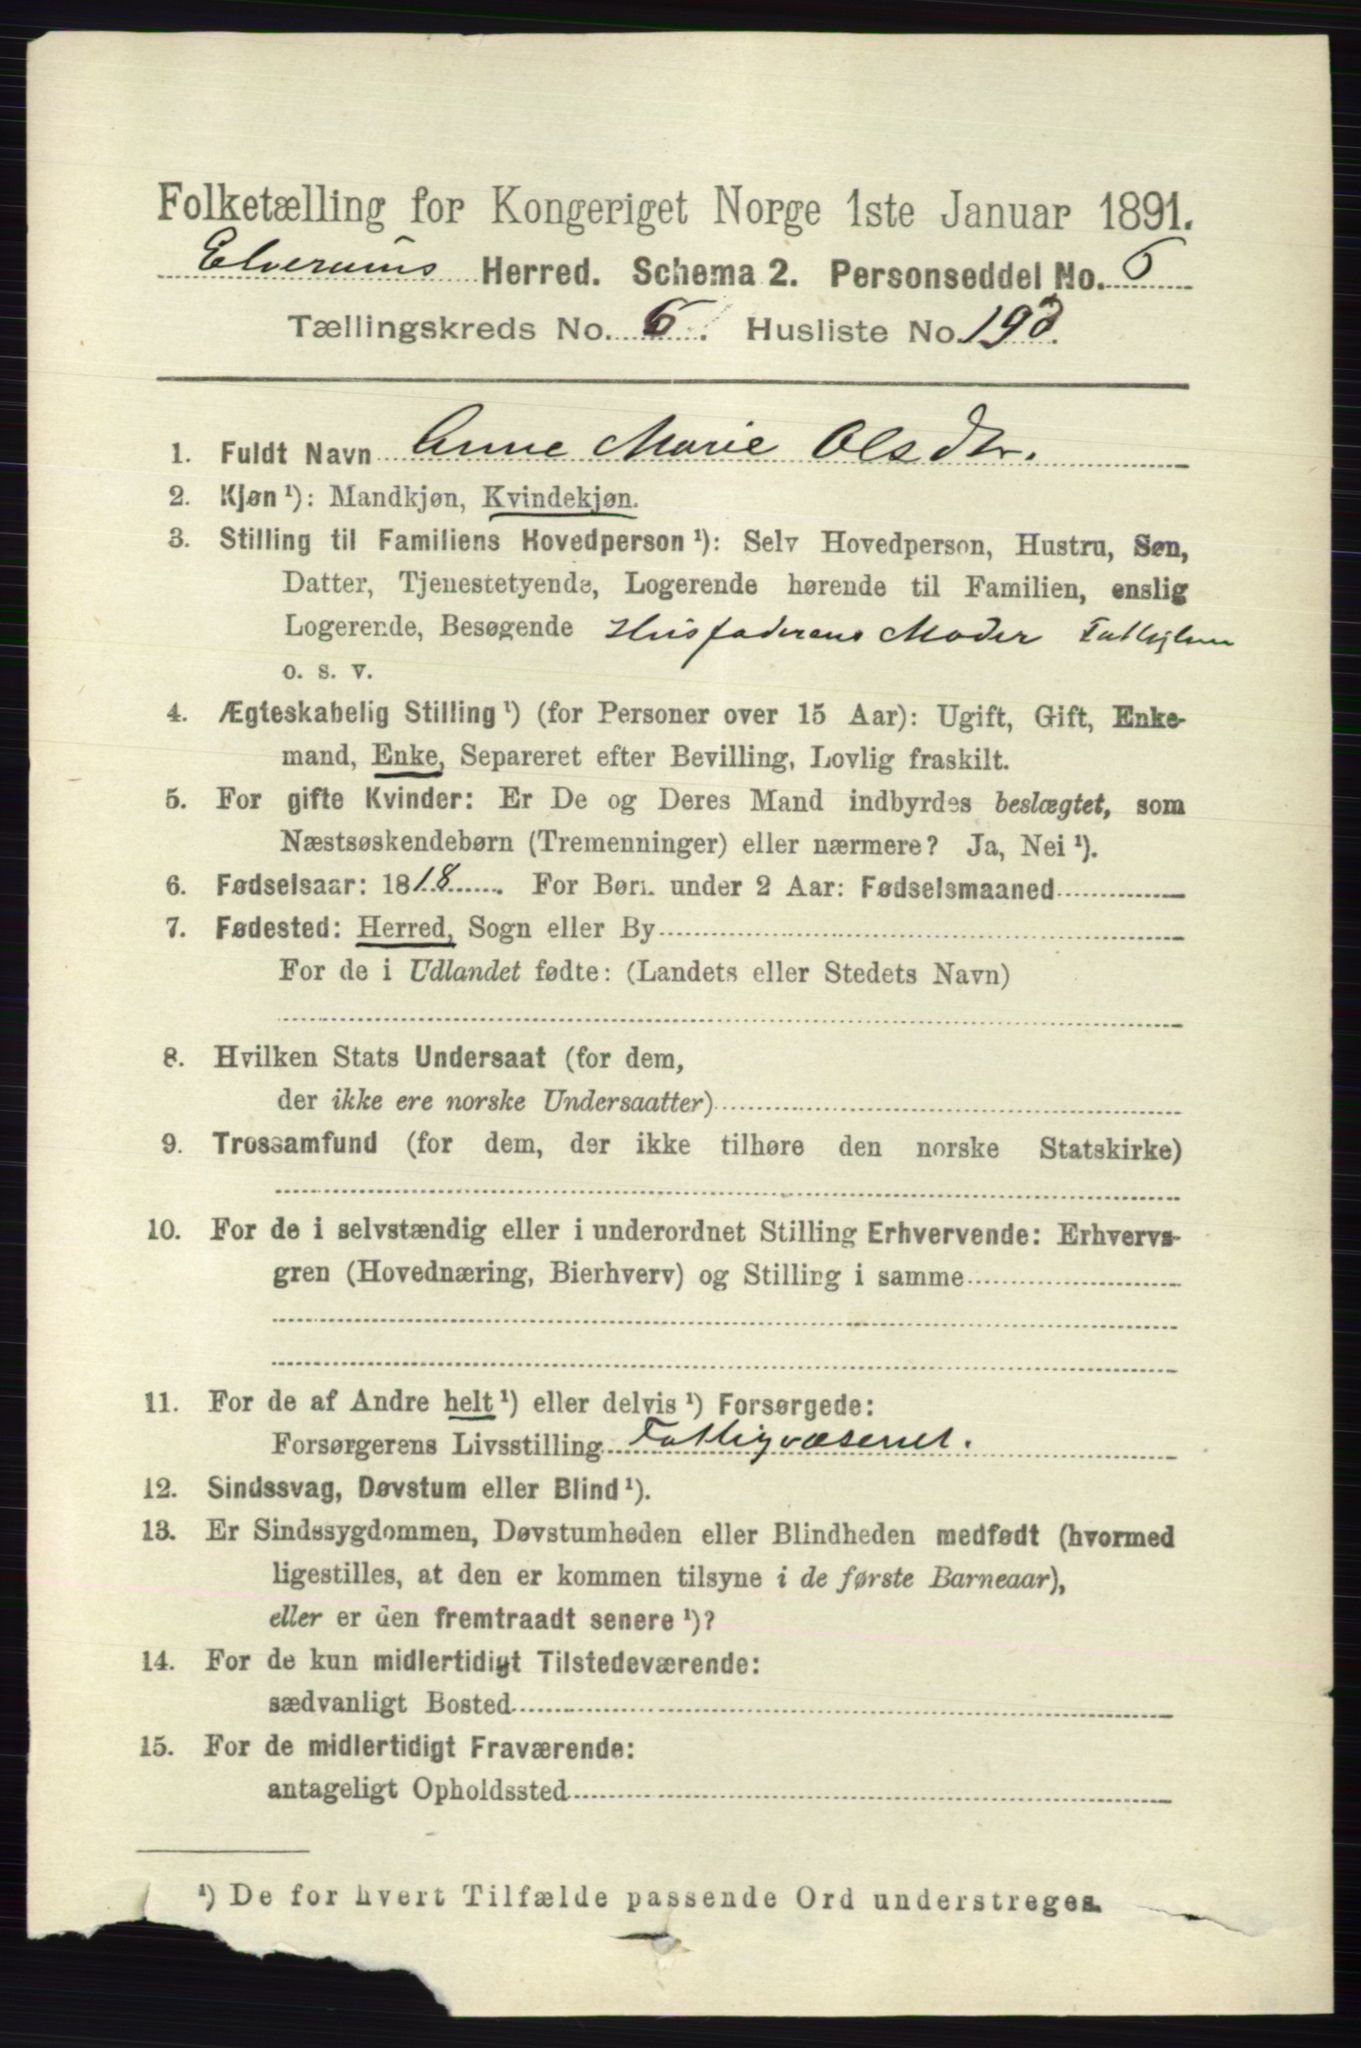 Folketælling for Kongeriget Norge 1ste Januar 1891.
Elverums Herred. Schema 2. Personseddel No. 6
Tællingskreds No. 6. Husliste No. 198.
1. Fuldt Navn Anne Marie Olsdtr.
2. Kjøn ¹): Mandkjøn, Kvindekjøn.
3. Stilling til Familiens Hovedperson ¹): Selv Hovedperson, Hustru, Søn,
Datter, Tjenestetyende, Logerende hørende til Familien, enslig
Logerende, Besøgende Husfaderens Moder
o. s. v.
4. Ægteskabelig Stilling ¹) (for Personer over 15 Aar): Ugift, Gift, Enke-
mand, Enke, Separeret efter Bevilling, Lovlig fraskilt.
5. For gifte Kvinder: Er De og Deres Mand indbyrdes beslægtet, som
Næstsøskendebørn (Tremenninger) eller nærmere? Ja, Nei ¹).
6. Fødselsaar: 1818. For Børn under 2 Aar: Fødselsmaaned
7. Fødested: Herred, Sogn eller By
For de i Udlandet fødte: (Landets eller Stedets Navn)
8. Hvilken Stats Undersaat (for dem,
der ikke ere norske Undersaatter)
9. Trossamfund (for dem, der ikke tilhøre den norske Statskirke)
10. For de i selvstændig eller i underordnet Stilling Erhvervende: Erhvervs-
gren (Hovednæring, Bierhverv) og Stilling i samme
11. For de af Andre helt ¹) eller delvis ¹) Forsørgede:
Forsørgerens Livsstilling Fattigvæsenet.
12. Sindssvag, Døvstum eller Blind ¹).
13. Er Sindssygdommen, Døvstumheden eller Blindheden medfødt (hvormed
ligestilles, at den er kommen tilsyne i de første Barneaar),
eller er den fremtraadt senere ¹)?
14. For de kun midlertidigt Tilstedeværende:
sædvanligt Bosted
15. For de midlertidigt Fraværende:
antageligt Opholdssted
¹) De for hvert Tilfælde passende Ord understreges.